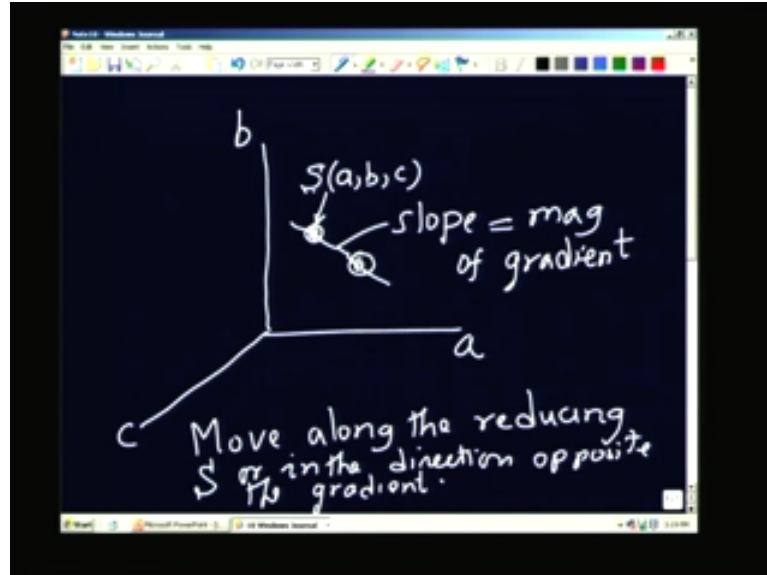 Note10 - Windows Journal
File Edit View Insert Actions Tools Help
b
S(a,b,c)
slope = mag
of gradient
a
c
Move along the reducing
S or in the direction opposite
the gradient.
Start
Microsoft PowerPoint - [
10 Windows Journal